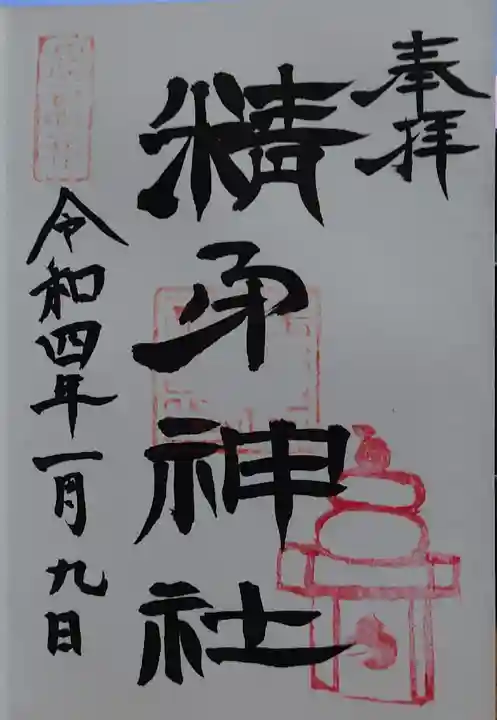 奉拝
精矛神社
令和四年一月九日